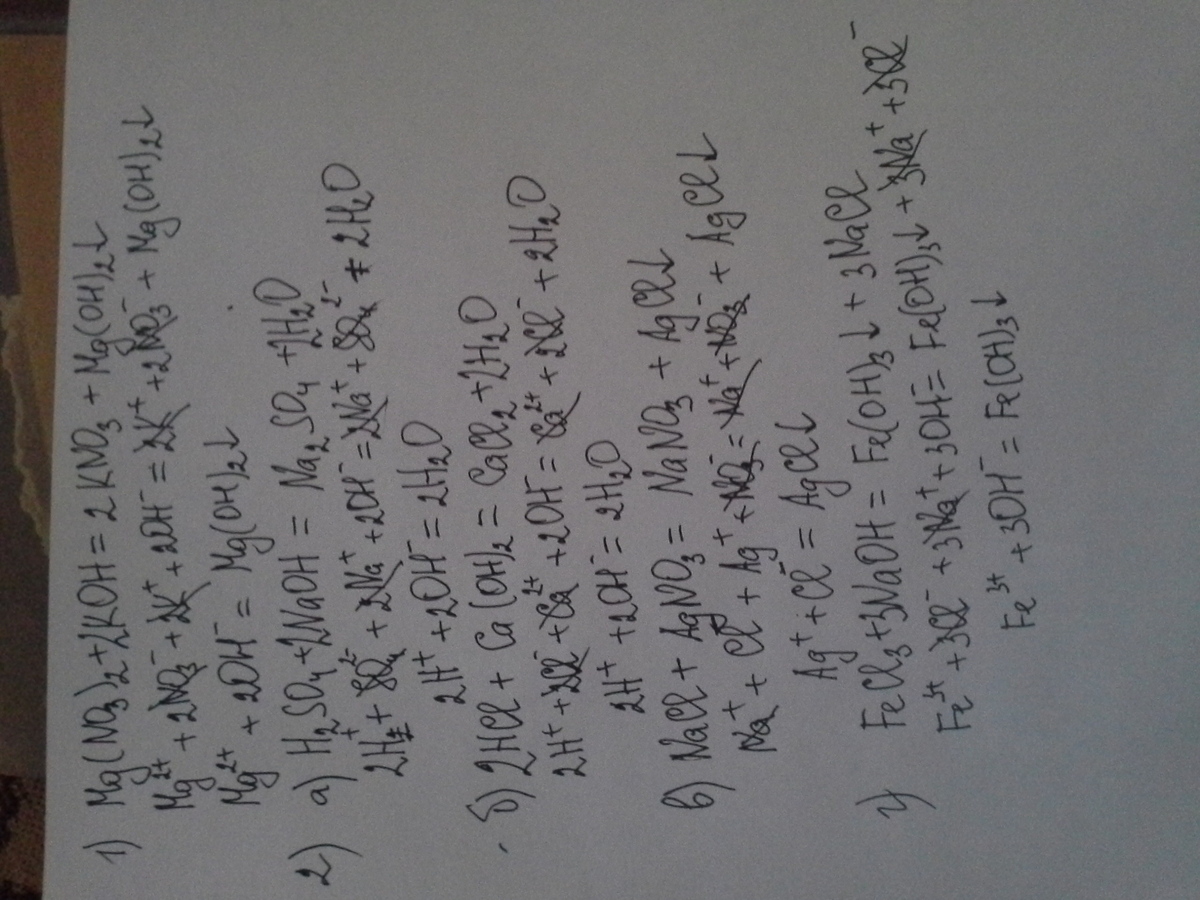 1) Mg(NO₃)₂+2KOH = 2KNO₃ + Mg(OH)₂↓
Mg²⁺ + 2NO₃⁻ + 2K⁺ + 2OH⁻ = 2K⁺ + 2NO₃⁻ + Mg(OH)₂↓
Mg²⁺ + 2OH⁻ = Mg(OH)₂↓
2) а) H₂SO₄+2NaOH = Na₂SO₄ + 2H₂O
2H⁺ + SO₄²⁻ + 2Na⁺ + 2OH⁻ = 2Na⁺ + SO₄²⁻ + 2H₂O
2H⁺ + 2OH⁻ = 2H₂O
б) 2HCl + Ca(OH)₂ = CaCl₂ + 2H₂O
2H⁺ + 2Cl⁻ + Ca²⁺ + 2OH⁻ = Ca²⁺ + 2Cl⁻ + 2H₂O
2H⁺ + 2OH⁻ = 2H₂O
в) NaCl + AgNO₃ = NaNO₃ + AgCl↓
Na⁺ + Cl⁻ + Ag⁺ + NO₃⁻ = Na⁺ + NO₃⁻ + AgCl↓
Ag⁺ + Cl⁻ = AgCl↓
г) FeCl₃+3NaOH = Fe(OH)₃↓ + 3NaCl
Fe³⁺ + 3Cl⁻ + 3Na⁺ + 3OH⁻ = Fe(OH)₃↓ + 3Na⁺ + 3Cl⁻
Fe³⁺ + 3OH⁻ = Fe(OH)₃↓